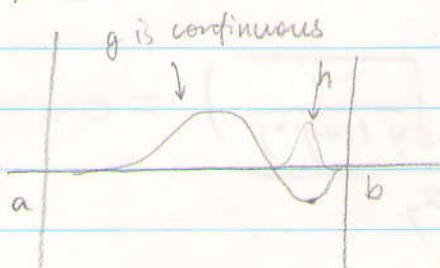 g is continuous
h
a
b